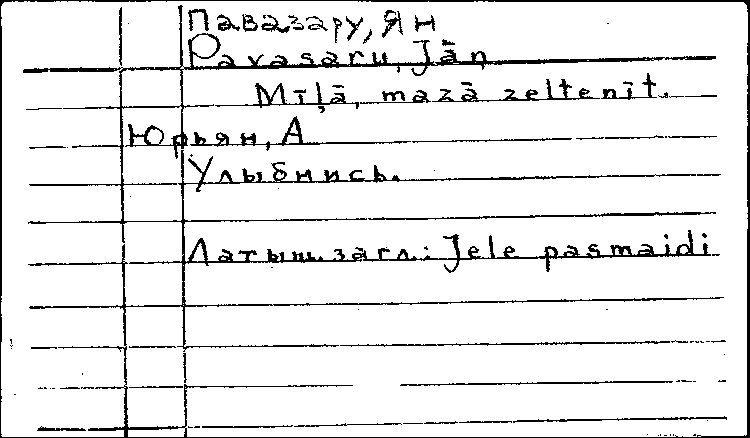 Павазару, Ян
Pavasaru, Jāņ
Mīļā, mazā zeltenīt.
Юрьян, А
Улыбнись.
Латыш. загл.: Jele pasmaidi